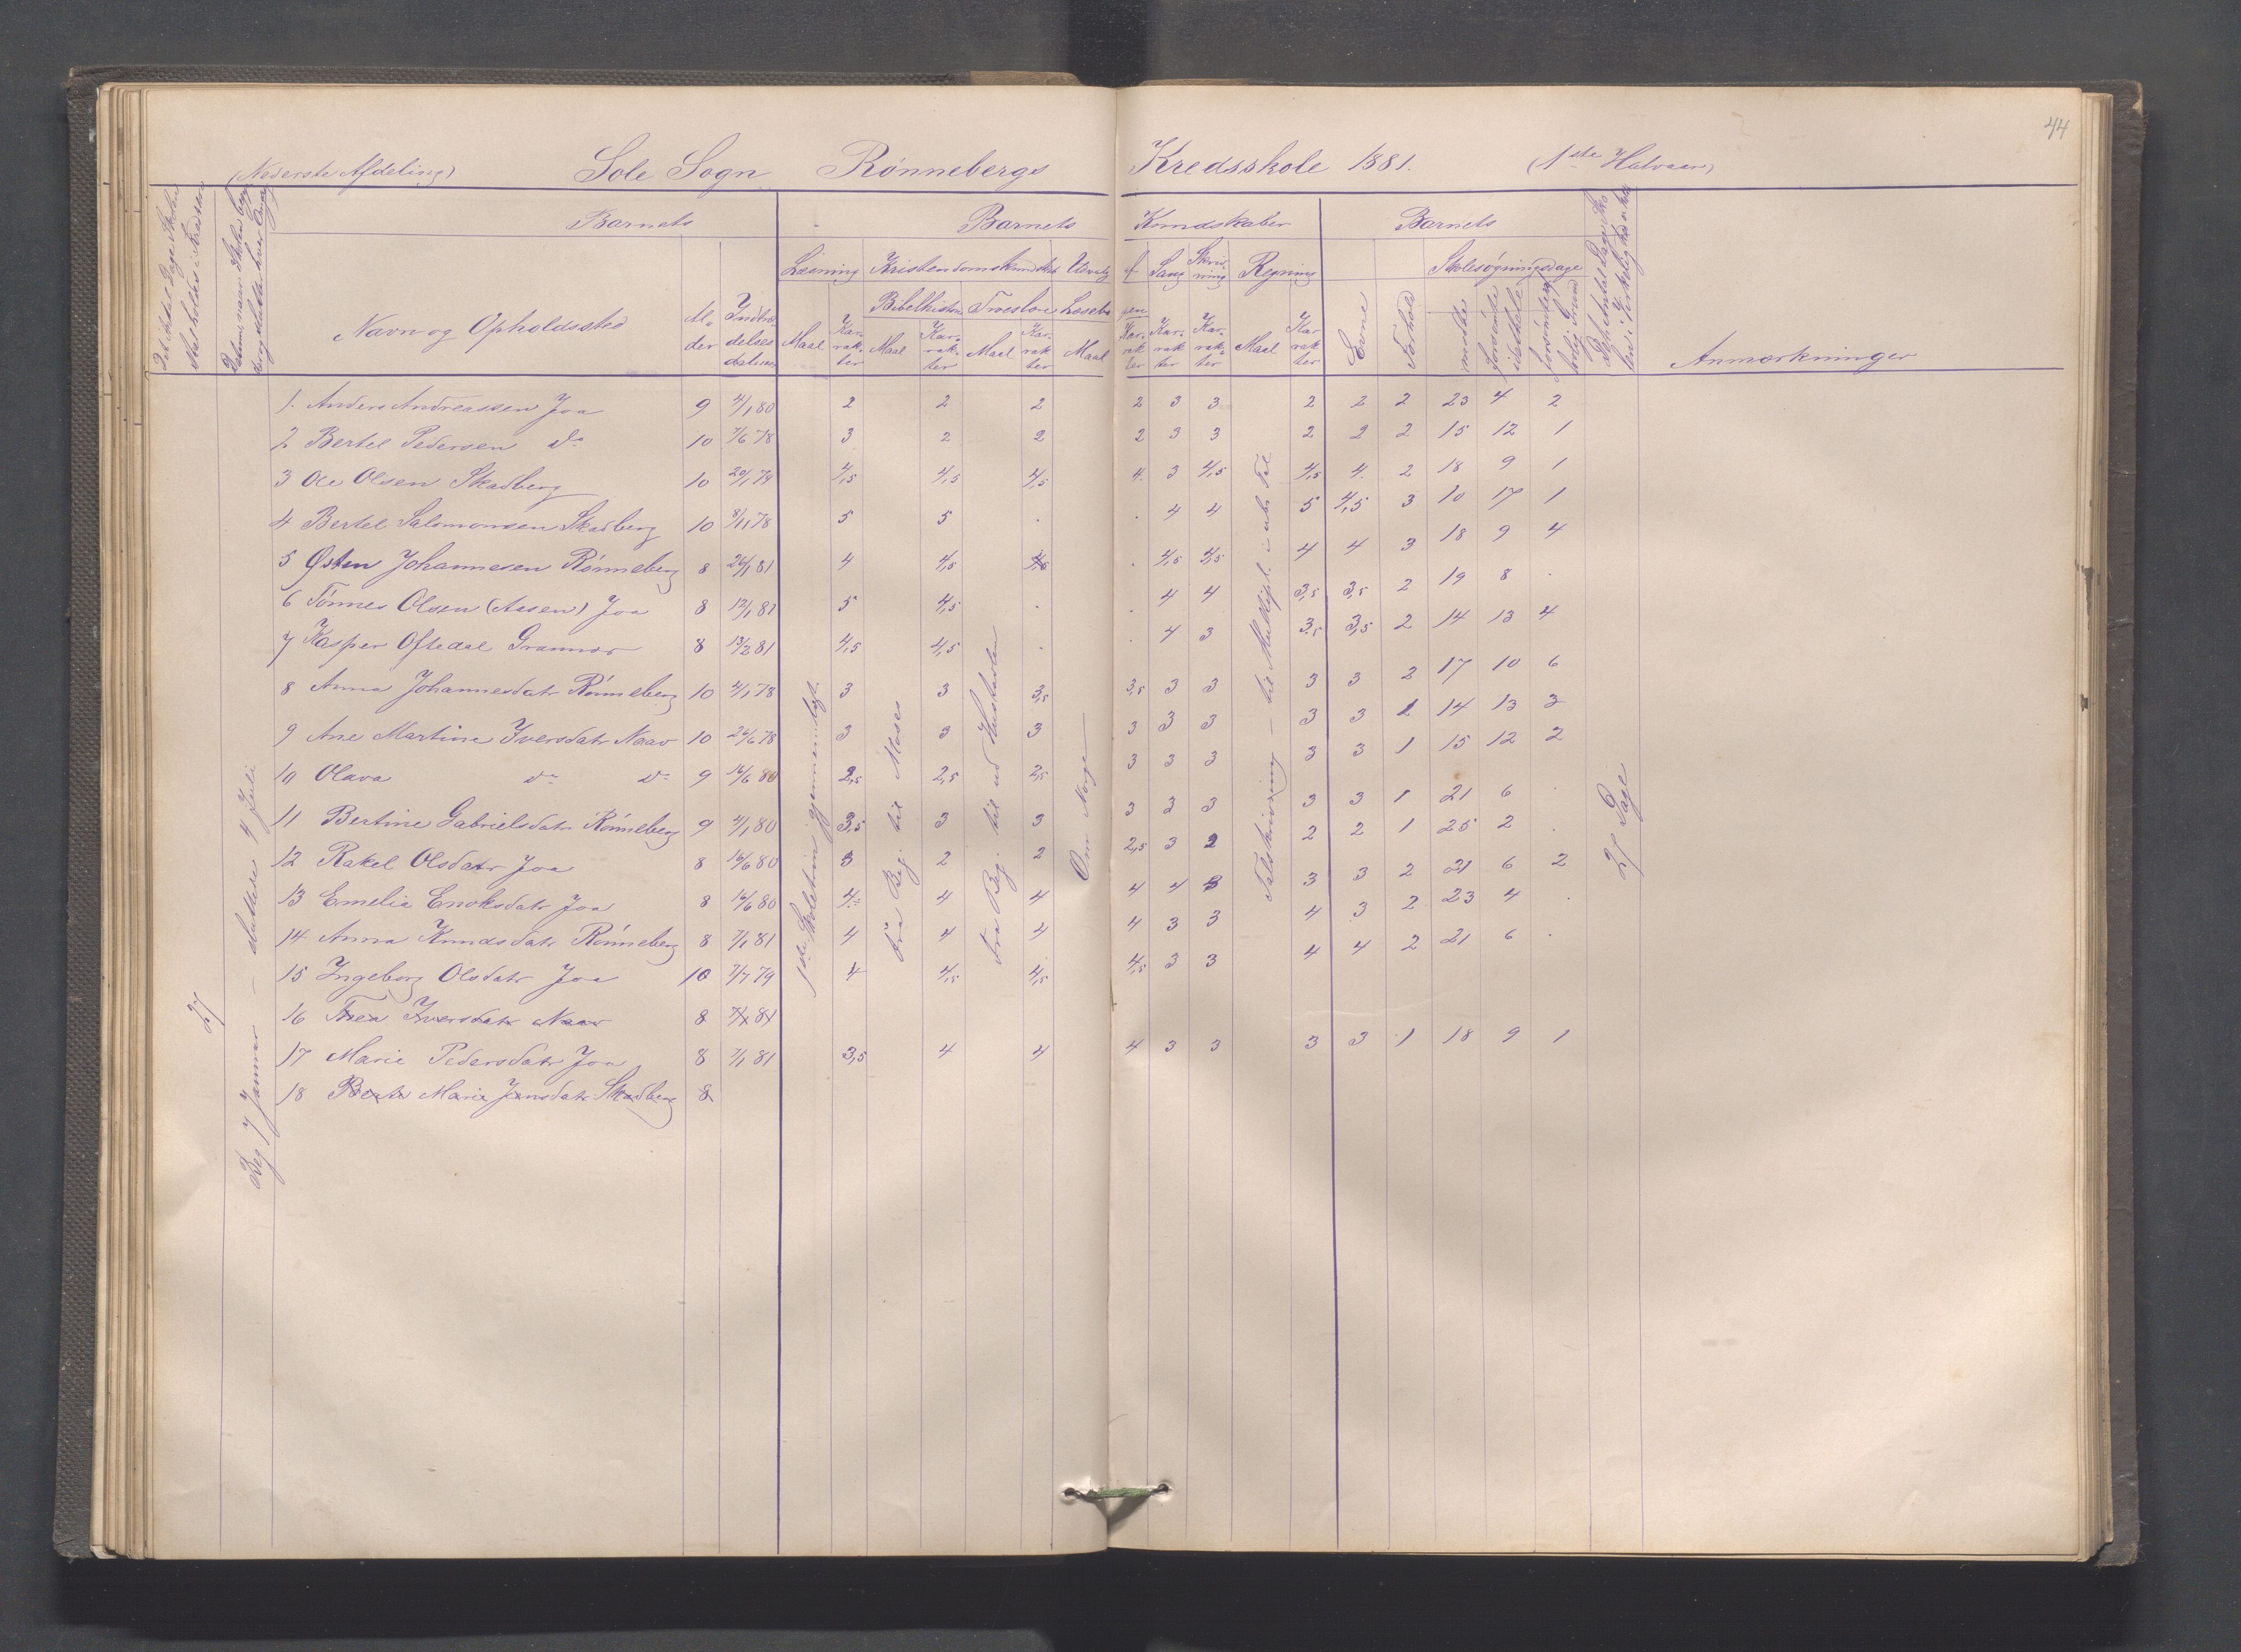 44
(Nederste Afdeling) Sole Sogn Rønnebergs Kredsskole 1881. (1ste Halvaar)
Barnets Barnets Kundskaber Barnets
Læsning Kristendomskundskab Udvalg af Sang Skrivning Regning Skolesøgningsdage
Bibelhistorie Troeslære Læsebo
Navn og Opholdssted Alder Indtrædelses datum Maal Karakter Maal Karakter Maal Karakter Maal Karakter Karakter Karakter Maal Karakter Evne Forhold mødte forsømte Anmærkninger
1. Anders Andreassen Joa 9 4/1 80 2 2 2 2 3 3 2 2 2 23 4 2
2 Bertel Pedersen do 10 7/6 78 3 2 2 2 3 3 2 2 2 15 12 1
3 Ole Olsen Skadberg 10 20/1 79 4,5 4,5 4,5 4. 3 4,5 4,5 4. 2 18 9 1
4 Bertel Salomonsen Skadberg 10 8/11 78 5 5 . . 4 4 5 4,5 3 10 17 1
5 Østen Johannesen Rønneberg 8 26/1 81 4 4,5 4,5 . 4,5 4,5 4 4 3 18 9 4
6 Tønnes Olsen (Aasen) Joa 8 12/1 81 5 4,5 . . 4 4 3,5 3,5 2 19 8 .
7 Kasper Oftedal Grannes 8 13/2 81 4,5 4,5 . . 4 3 3,5 3,5 2 14 13 4
8 Anna Johannesdatr Rønneberg 10 4/1 78 3 3 3,5 3,5 3 3 3 3 2 17 10 6
9 Ane Martine Iversdatr Naav 10 26/6 78 3 3 3 3 3 3 3 3 1 14 13 3
10 Olava do do 9 16/6 80 2,5 2,5 2,5 3 3 3 3 3 1 15 12 2
11 Bertine Gabrielsdatr Rønneberg 9 4/1 80 3,5 3 3 3 3 3 3 3 1 21 6 .
12 Rakel Olsdatr Joa 8 16/6 80 3 2 2 2,5 3 2 2 2 1 25 2 .
13 Emelia Enoksdatr Joa 8 16/6 80 4 4 4 4 4 3 3 3 2 21 6 2
14 Anna Knudsdatr Rønneberg 8 7/1 81 4 4 4 4 3 3 4 3 2 23 4 .
15 Ingeborg Olsdatr Joa 10 7/7 79 4 4,5 4,5 4,5 3 3 4 4 2 21 6 .
16 Thea Iversdatr Naav 8 7/1 81
17 Marie Pedersdatr Joa 8 7/1 81 3,5 4 4 4 3 3 3 3 1 18 9 1
18 Berte Marie Jonsdatr Skadberg 8
27
Beg 7 Januar – sluttede 4 Juli
1ste Skoletrin gjennemlæst.
Fra Beg. til Moses
Fra Beg. til ud Huustavlen
Om Norge
27 Dage